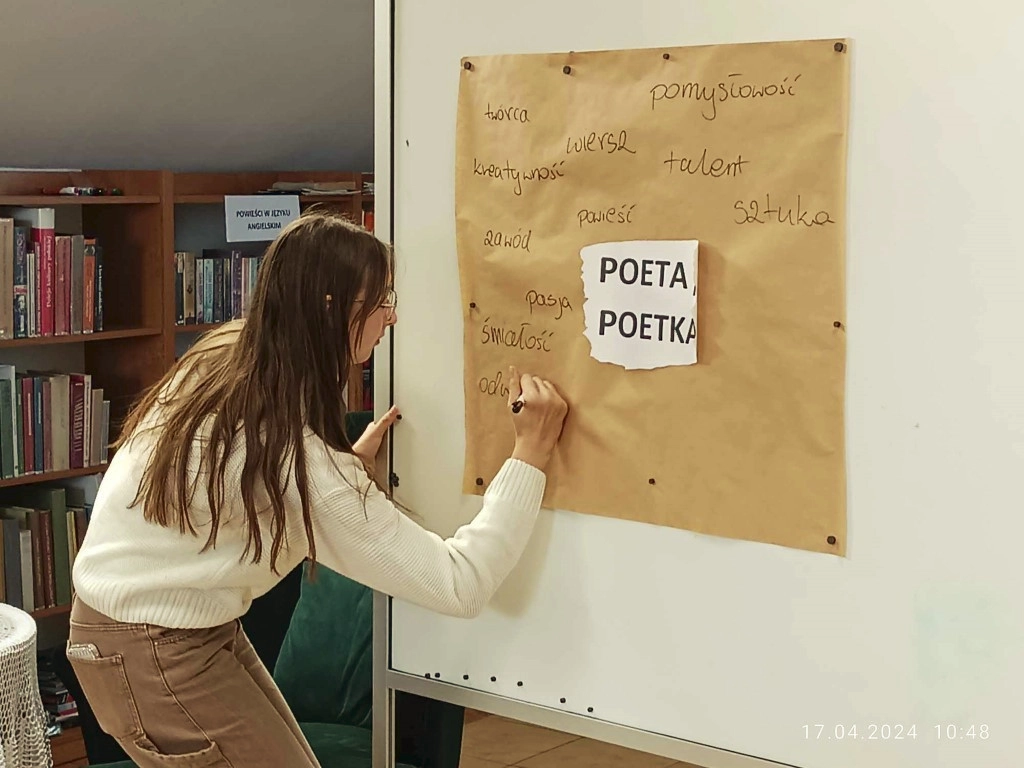 pomysłowość
twórca
wiersz
talent
kreatywność
powieść
sztuka
zawód
POETA,
POETKA
pasja
śmiałość
POWIEŚCI W JĘZYKU
ANGIELSKIM
17.04.2024 10:48